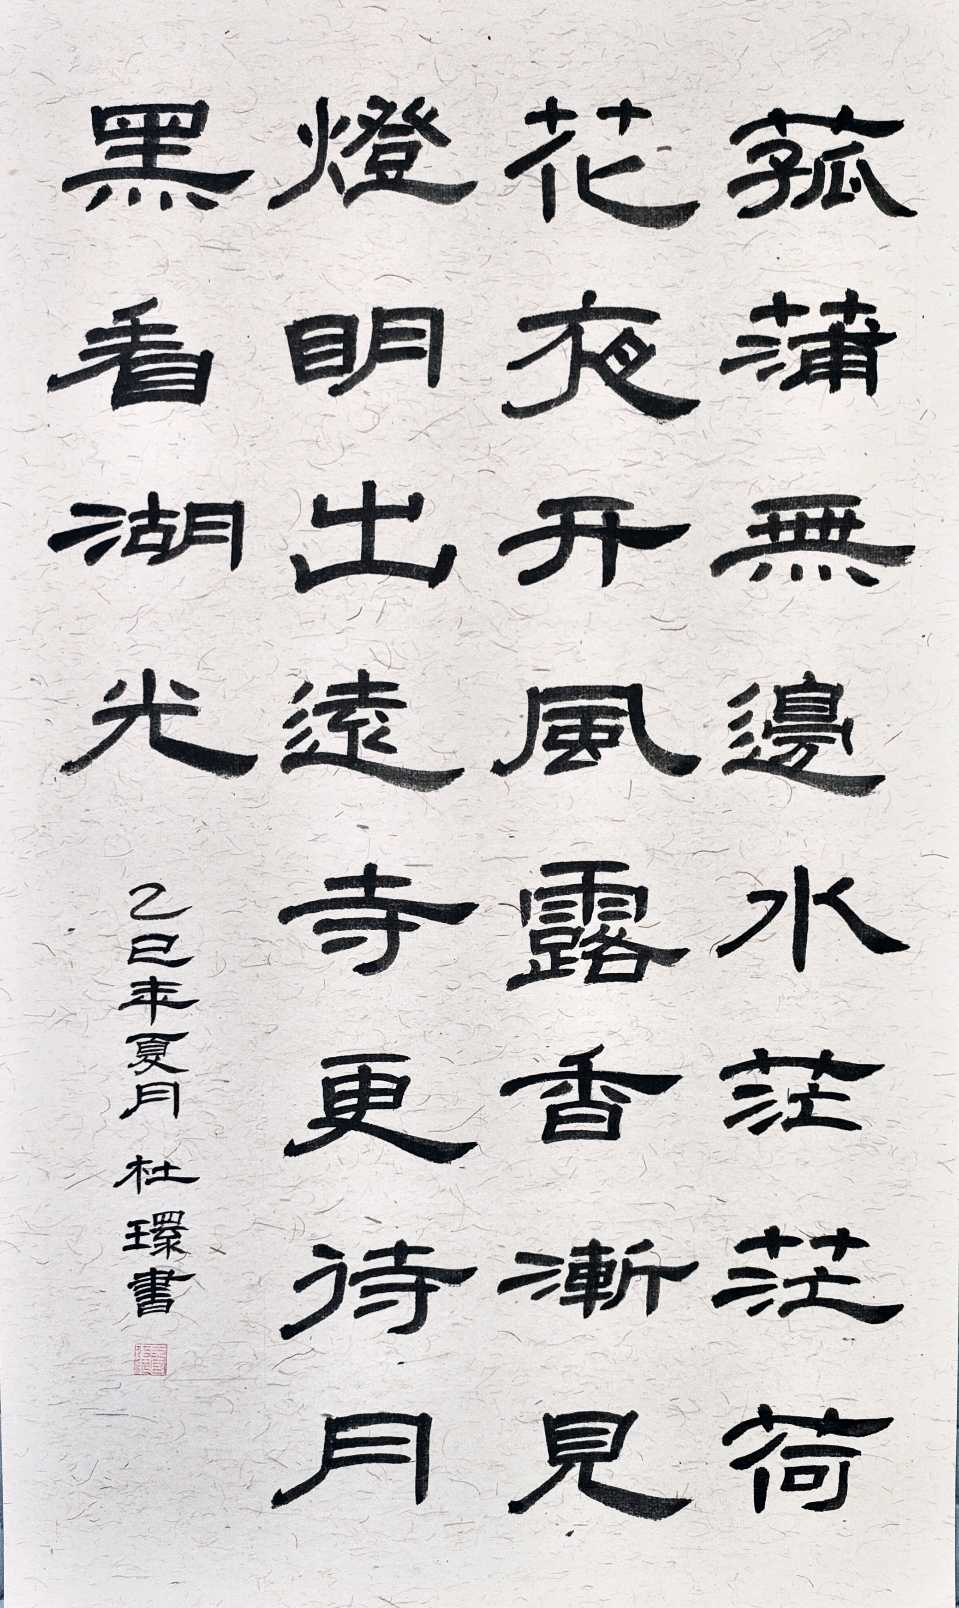 菰蒲無邊水茫茫荷
花夜开風露香漸見
燈明出遠寺更待月
黑看湖光
乙巳年夏月 杜環書